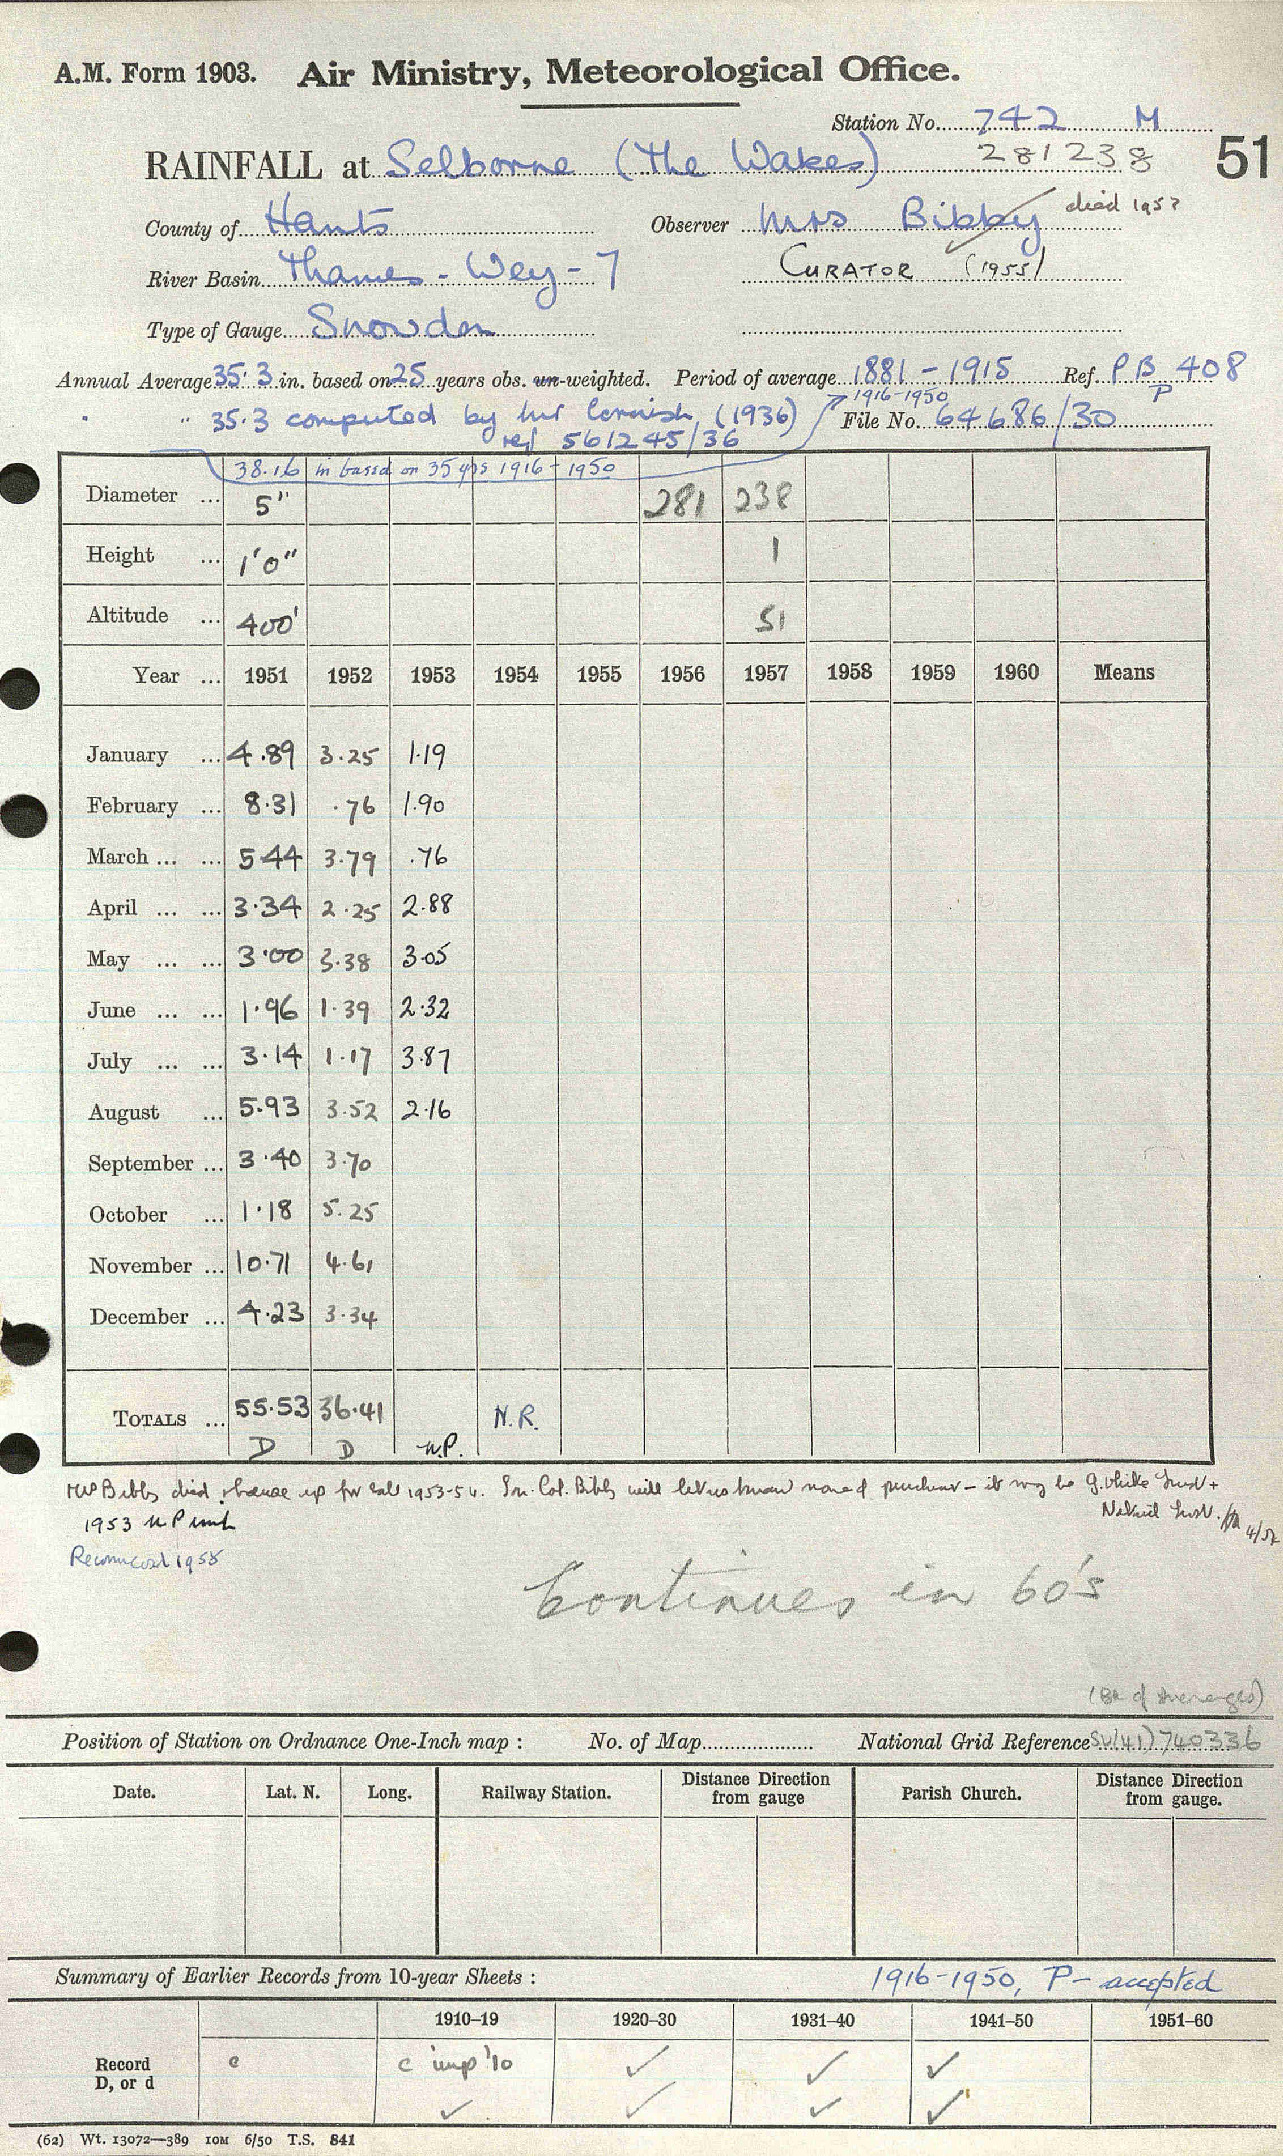 A.M. Form 1903. Air Ministry, Meteorological Office.
Station No. 742 M
281238
51
RAINFALL at Selborne (The Wakes)
County of Hants Observer Mrs Bibby died 1953
River Basin Thames - Wey - 7 CURATOR (1955)
Type of Gauge Snowdon
Annual Average 35.3 in. based on 25 years obs. un-weighted. Period of average 1881 - 1915 Ref. PB 408
P
1916-1950
" 35.3 computed by Mr Cornish (1936) File No. 64686/30
ref 561245/36
38.16 in based on 35 yrs 1916 - 1950
Diameter ... 5" 281 238
Height ... 1'0" 1
Altitude ... 400' 51
Year ... 1951 1952 1953 1954 1955 1956 1957 1958 1959 1960 Means
January ... 4.89 3.25 1.19
February ... 8.31 .76 1.90
March ... ... 5.44 3.79 .76
April ... ... 3.34 2.25 2.88
May ... ... 3.00 3.38 3.05
June ... ... 1.96 1.39 2.32
July ... ... 3.14 1.17 3.87
August ... 5.93 3.52 2.16
September ... 3.40 3.70
October ... 1.18 5.25
November ... 10.71 4.61
December ... 4.23 3.34
TOTALS ... 55.53 36.41 N.R.
D D n.P.
Mrs Bibby died house up for sale 1953-54. Lt. Col. Bibby will let us know name of purchaser - it may be G. White Trust +
National Trust. 4/54
1953 n P
Recommenced 1955
Continues in 60's
(Bk of Averages)
Position of Station on Ordnance One-Inch map : No. of Map National Grid Reference SU(41)740336
Date. Lat. N. Long. Railway Station. Distance Direction from gauge Parish Church. Distance Direction from gauge.
Summary of Earlier Records from 10-year Sheets : 1916-1950, P - accepted
1910-19 1920-30 1931-40 1941-50 1951-60
Record c c imp '10 ✓ ✓ ✓
D, or d ✓ ✓ ✓ ✓
(62) Wt. 13072—389 10M 6/50 T.S. 841